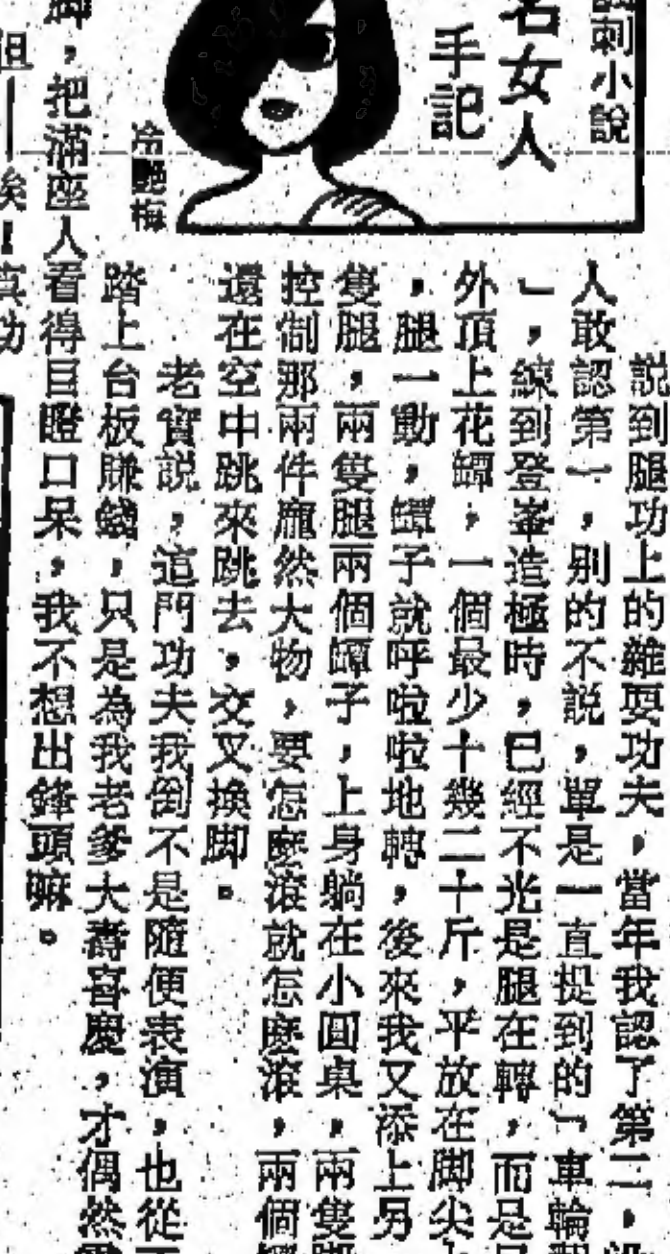 刺小說
名女人
手記
冷艷梅
說到腿功上的雜耍功夫，當年我認了第二，沒
人敢認第一，別的不說，單是一直提到的「車輪
」，練到登峯造極時，已經不光是腿在轉，而是
外頂上花罈，一個最少十幾二十斤，平放在脚尖
，腿一動，罈子就呼啦啦地轉，後來我又添上另
隻腿，兩隻腿兩個罈子，上身躺在小圓桌，兩隻脚
控制那兩件龐然大物，要怎麼滾就怎麼滾，兩個罈
還在空中跳來跳去，交叉換脚。
老實說，這門功夫我倒不是隨便表演，也從
踏上台板賺錢，只是為我老爹大壽喜慶，才偶然露
脚，把滿座人看得目瞪口呆，我不想出鋒頭嘛。
但—唉！真功